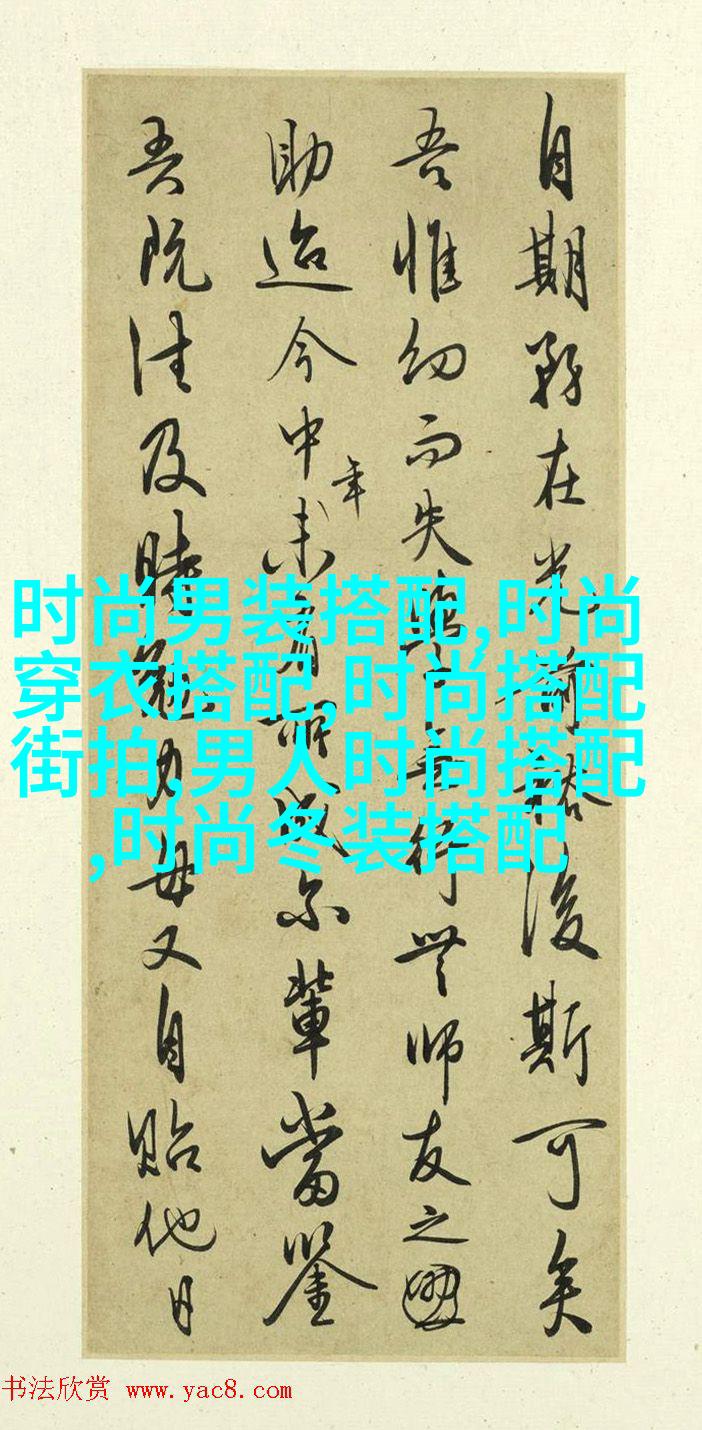 自期務在光前裕後斯可矣
吾惟幼而失學無行無師友之
助迨今中年未有所成尔輩當鑒
吾既往及時勉力毋又自貽他日
时尚男装搭配,时尚
穿衣搭配,时尚搭配
街拍,男人时尚搭配
,时尚冬装搭配
书法欣赏 www.yac8.com